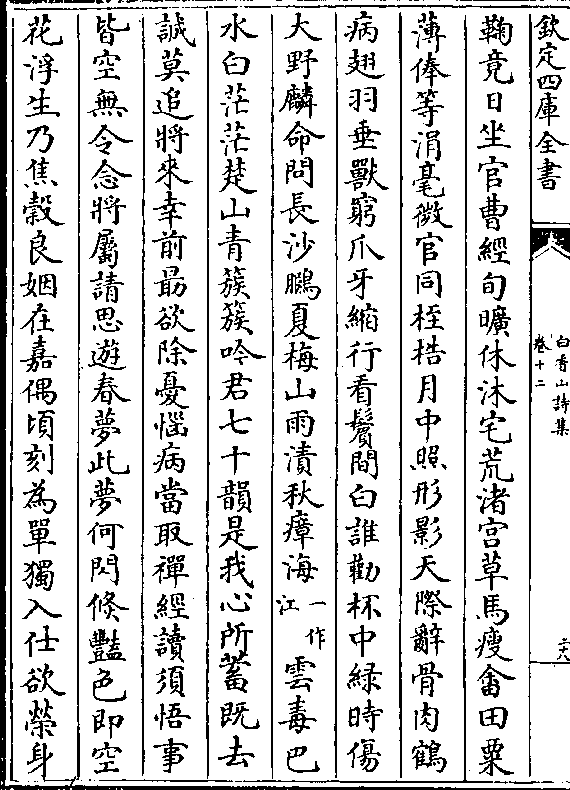 欽定四庫全書
白香山詩集
卷十二
二六
鞠竟日坐官曹經旬曠休沐宅荒渚宫草馬瘦畬田粟
薄俸等涓毫微官同桎梏月中照形影天際辭骨肉鶴
病翅羽垂獸窮爪牙縮行看鬢間白誰勸杯中緑時傷
大野麟命問長沙鵩夏梅山雨漬秋瘴海一作江雲毒巴
水白茫茫楚山青簇簇吟君七十韻是我心所蓄既去
誠莫追將來幸前朂欲除憂惱病當取禪經讀須悟事
皆空無令念將屬請思遊春夢此夢何閃倏豔色即空
花浮生乃焦榖良姻在嘉偶頃刻為單獨入仕欲榮身